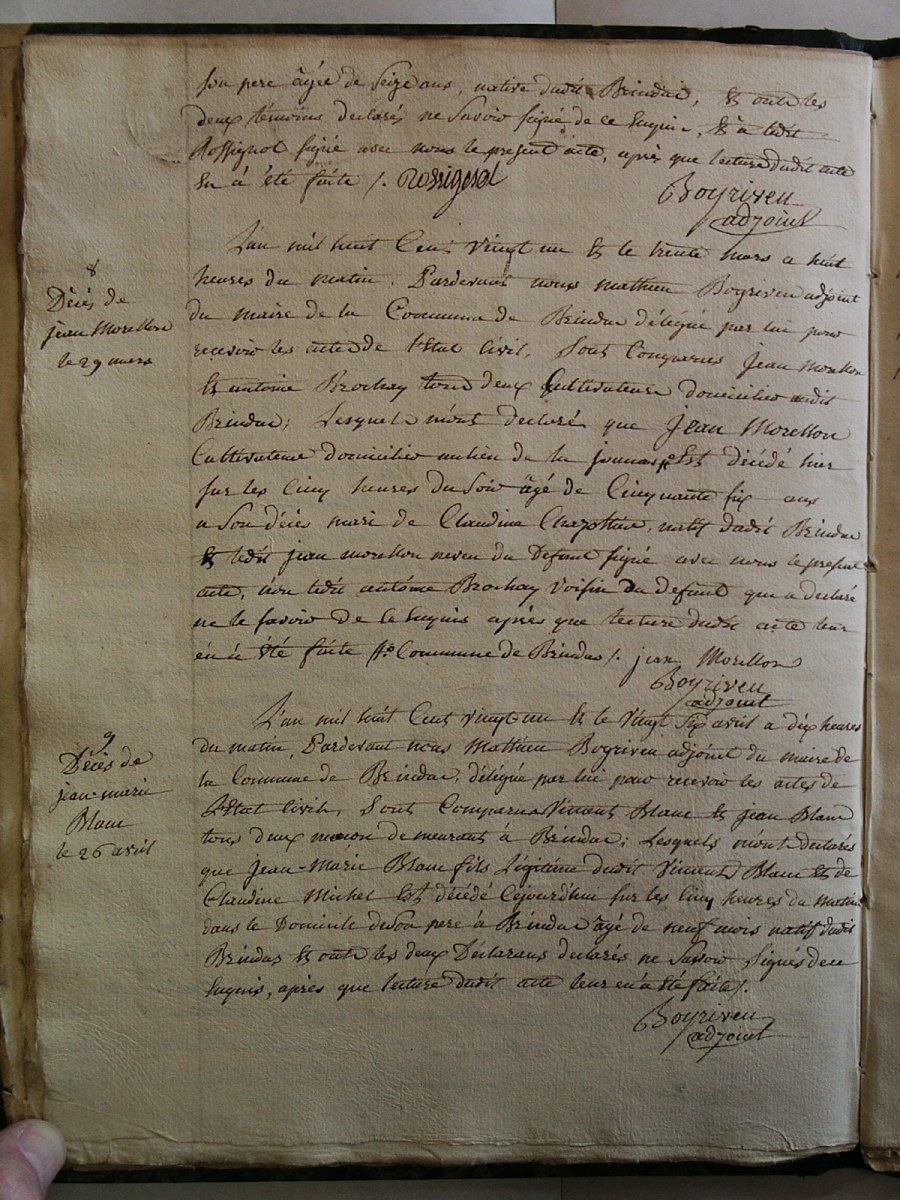 son pere âgée de Seize ans, native dudit Brindas, Et onte les
deux témoins declarés ne Savoir signé de ce Enquis, Et à ledit
Rossignol signé avec nous le present acte, après que lecture dudit acte
En à été faite /. Rossignol
Boyriven
adjoint
8
Décès de
jean Morellon
le 29 mars
L'an mil huit Cent vingt un Et le trente mars a huit
heures du matin. Pardevant nous mathieu Boyriven adjoint
du maire de la Commune de Brindas délégué par lui pour
recevoir les actes de l'Etat Civil, Sont Comparus Jean Morellon
Et antoine Brochay tous deux Cultivateurs domiciliés audit
Brindas; Lesquels m'ont declaré que Jean Morellon
Cultivateur domicilié au lieu de la Est décédé hier
sur les Cinq heures du Soir âgé de Cinquante six ans
a Son décès mari de Claudine natif dudit Brindas
Et ledit jean morellon neveu du Defunt signé avec nous le present
acte, non ledit antoine Brochay voisin du defunt qui a declaré
ne le savoir de ce Enquis après que lecture dudit acte leur
en à été faite Commune de Brindas /. jean Morellon
Boyriven
adjoint
9
Décès de
jean-marie
Blanc
le 26 avril
L'an mil huit Cent vingt un Et le vingt six avril a dix heures
du matin, Pardevant nous Mathieu Boyriven adjoint du maire de
la Commune de Brindas, délégué par lui pour recevoir les actes de
l'Etat Civil, Sont Comparus Vincent Blanc Et jean Blanc
tous deux maçon demeurants à Brindas; Lesquels m'ont declarés
que Jean-Marie Blanc fils Légitime dudit Vincent Blanc Et de
Claudine Michel Est décédé Cejourd'hui sur les Cinq heures du matin
dans le Domicile de Son pere à Brindas âgé de neuf mois natif dudit
Brindas Et onte les deux Déclarans declarés ne Savoir Signés de ce
Enquis, après que lecture dudit acte leur en à été faite /.
Boyriven
adjoint